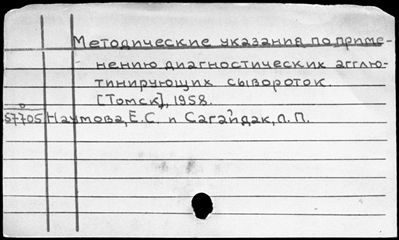 Методические указания по приме-
нению диагностических агглю-
тинирующих сывороток.
[Томск], 1958.
57705 Наумова, Е.С. и Сагайдак, Л.П.